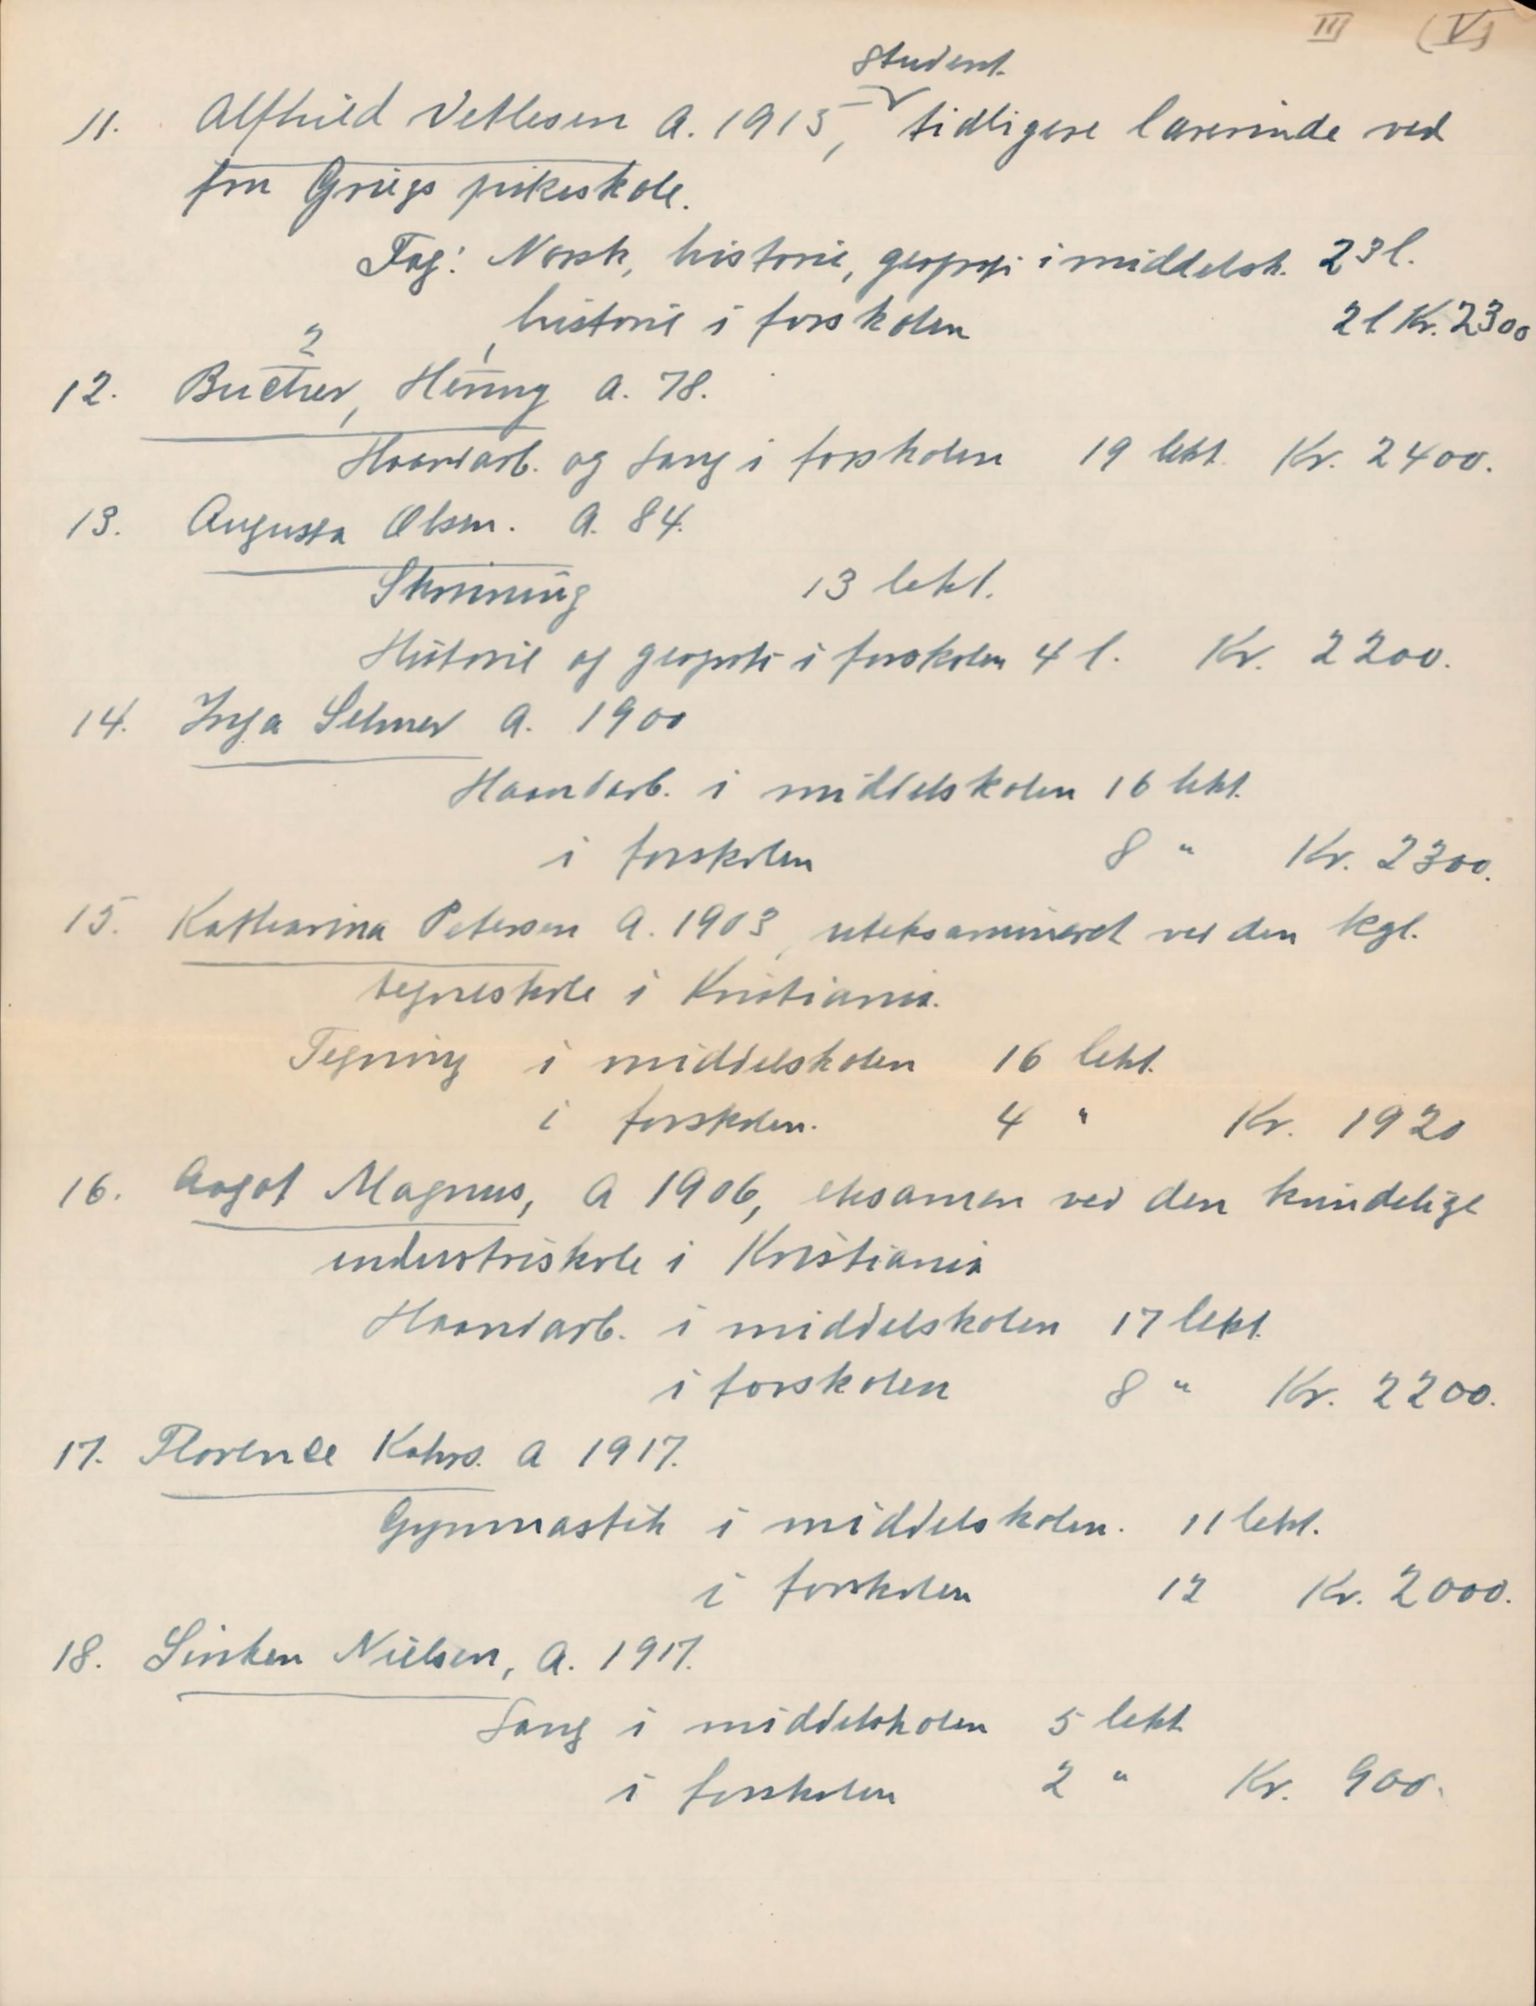 III (V)
student
11. Alfhild Vetlesen A. 1915, tidligere lærerinde ved
fru Griegs pikeskole.
Fag: Norsk, historie, geografi i middelsk. 23 l.
historie i forskolen 2 l Kr. 2300
2 1
12. Bucher, Henny A. 78.
Haandarb. og sang i forskolen 19 lekt. Kr. 2400.
13. Augusta Olsen. A. 84.
Skrivning 13 lekt.
Historie og geografi i forskolen 4 l. Kr. 2200.
14. Inga Selmer A. 1900
Haandarb. i middelskolen 16 lekt.
i forskolen 8 " Kr. 2300.
15. Katharina Petersen A. 1903, uteksaminert ved den kgl.
tegneskole i Kristiania.
Tegning i middelskolen 16 lekt.
i forskolen. 4 " Kr. 1920
16. Aagot Magnus, A 1906, eksamen ved den kvindelige
industriskole i Kristiania
Haandarb. i middelskolen 17 lekt.
i forskolen 8 " Kr. 2200.
17. Florence Kahrs. A 1917.
Gymnastik i middelskolen. 11 lekt.
i forskolen 12 Kr. 2000.
18. Sinken Nielsen, A. 1917.
Sang i middelskolen 5 lekt
i forskolen 2 " Kr. 900.